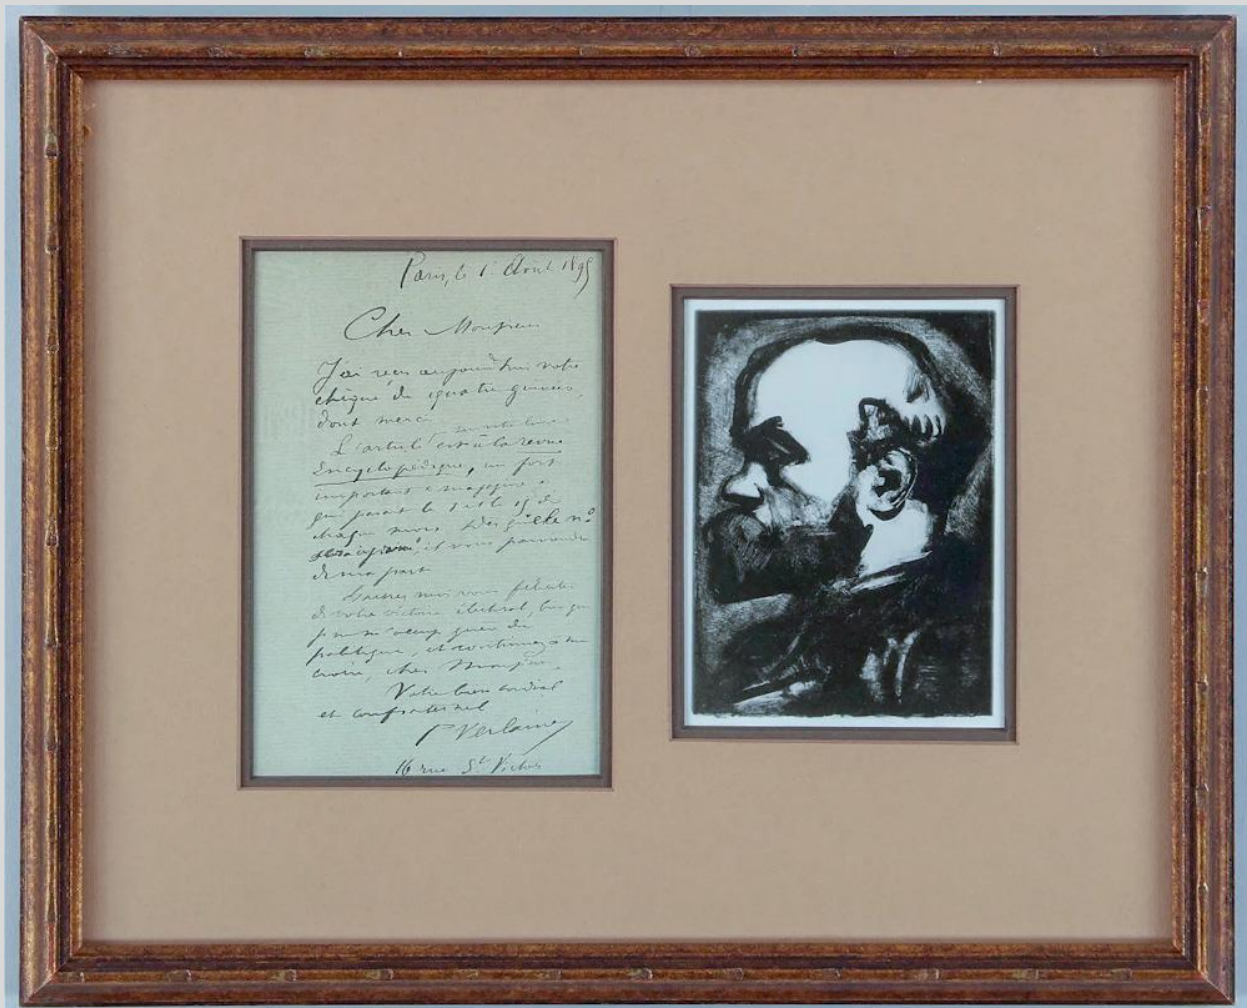 Paris, le 1er Août 1895
Cher Monsieur
J'ai reçu aujourd'hui votre
chèque de quatre guinées,
dont merci
L'article est à la revue
Encyclopédique, un fort
important magazine
qui parait le 1er et le 15 de
chaque mois. Dès que le no
il vous parviendra
de ma part
Laissez moi vous féliciter
de votre victoire électoral, bien que
je ne m'occupe guère de
politique, et continuez à me
croire, cher Monsieur,
Votre bien cordial
et confraternel
P Verlaine
16 rue St Victor